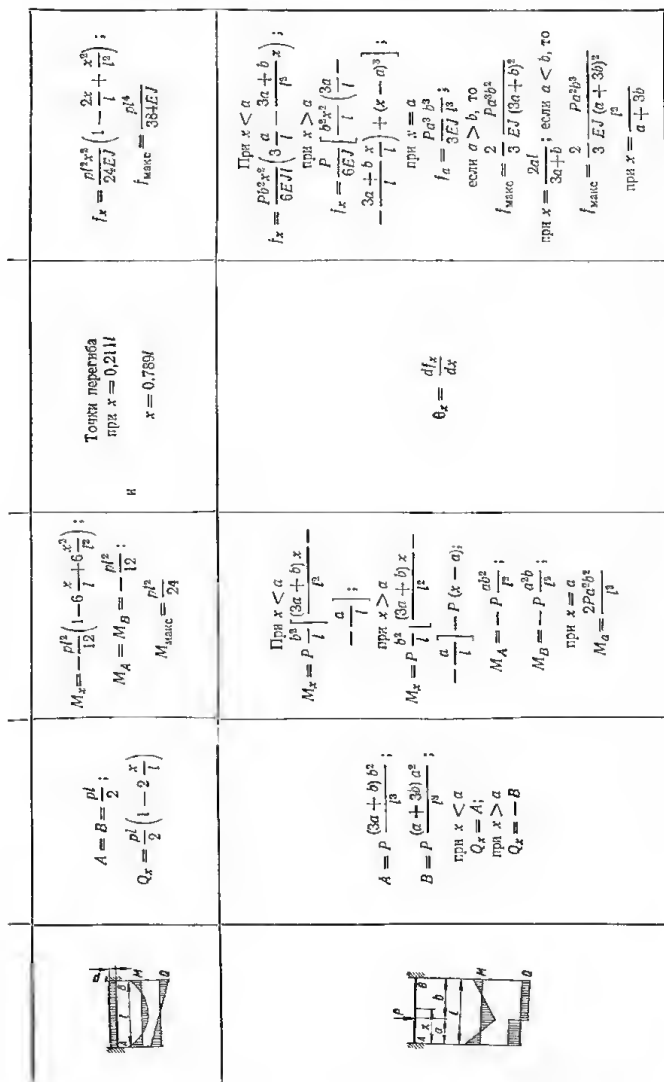 p
A l B
M
Q
A = B = pl/2;
Q_x = pl/2 (1 − 2 x/l)
M_x = − pl²/12 (1 − 6 x/l + 6 x²/l²);
M_A = M_B = − pl²/12;
M_макс = pl²/24
Точки перегиба
при x = 0,211l
и
x = 0.789l
f_x = pl²x²/24EJ (1 − 2x/l + x²/l²);
f_макс = pl⁴/384EJ
P
A x B
a b
l
M
Q
A = P (3a + b) b²/l³;
B = P (a + 3b) a²/l³;
при x < a
Q_x = A;
при x > a
Q_x = − B
При x < a
M_x = P b²/l [(3a + b) x/l² −
− a/l];
при x > a
M_x = P b²/l [(3a + b) x/l² −
− a/l] − P (x − a);
M_A = − P ab²/l²;
M_B = − P a²b/l²;
при x = a
M_a = 2Pa²b²/l³
θ_x = df_x/dx
При x < a
f_x = Pb²x²/6EJl (3 a/l − 3a + b/l² x);
при x > a
f_x = P/6EJ [b²x²/l² (3a/l −
− 3a + b/l x/l) + (x − a)³];
при x = a
f_a = Pa³/3EJ b³/l³;
если a > b, то
f_макс = 2/3 Pa³b²/EJ (3a + b)²
при x = 2al/3a + b; если a < b, то
f_макс = 2/3 Pa²b³/EJ (a + 3b)²
при x = l²/a + 3b